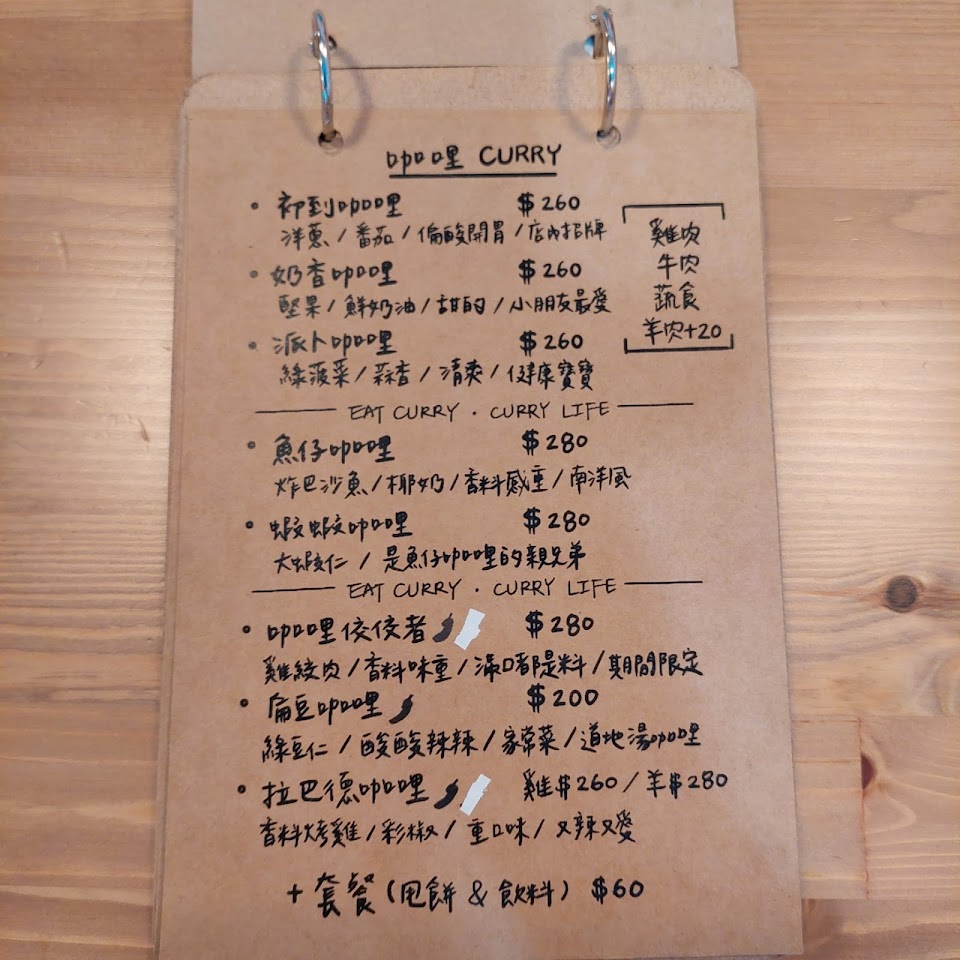 咖哩 CURRY
• 初到咖哩 $260
洋蔥/番茄/偏酸開胃/店內招牌
• 奶香咖哩 $260
堅果/鮮奶油/甜的/小朋友最愛
• 派卜咖哩 $260
綠菠菜/蒜香/清爽/健康寶寶
雞肉
牛肉
蔬食
羊肉+20
EAT CURRY · CURRY LIFE
• 魚仔咖哩 $280
炸巴沙魚/椰奶/香料感重/南洋風
• 蝦蝦咖哩 $280
大蝦仁/是魚仔咖哩的親兄弟
EAT CURRY · CURRY LIFE
• 咖哩佼佼者 $280
雞絞肉/香料味重/滿口都是料/期間限定
• 扁豆咖哩 $200
綠豆仁/酸酸辣辣/家常菜/道地湯咖哩
• 拉巴德咖哩 雞$260/羊$280
香料烤雞/彩椒/重口味/又辣又愛
+套餐(甩餅 & 飲料) $60